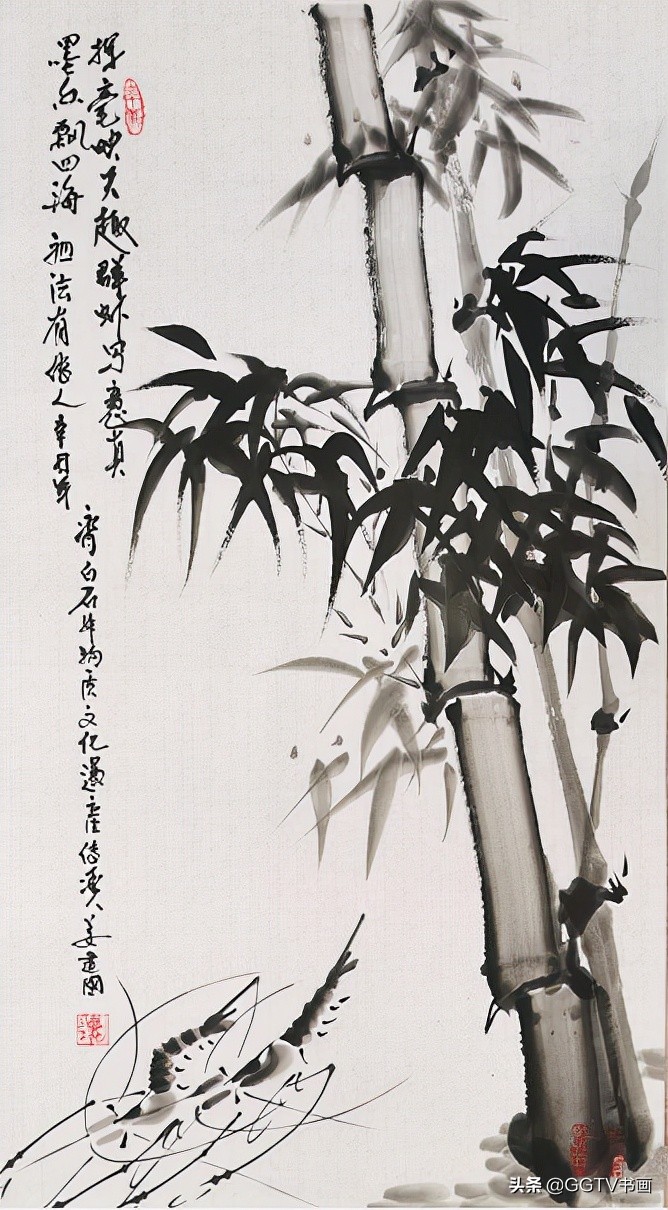 挥毫映天趣群虾写意真
墨香飘四海 法有传人辛丑年
齐白石非物质文化遗产传承人姜建国
头条 @GGTV书画